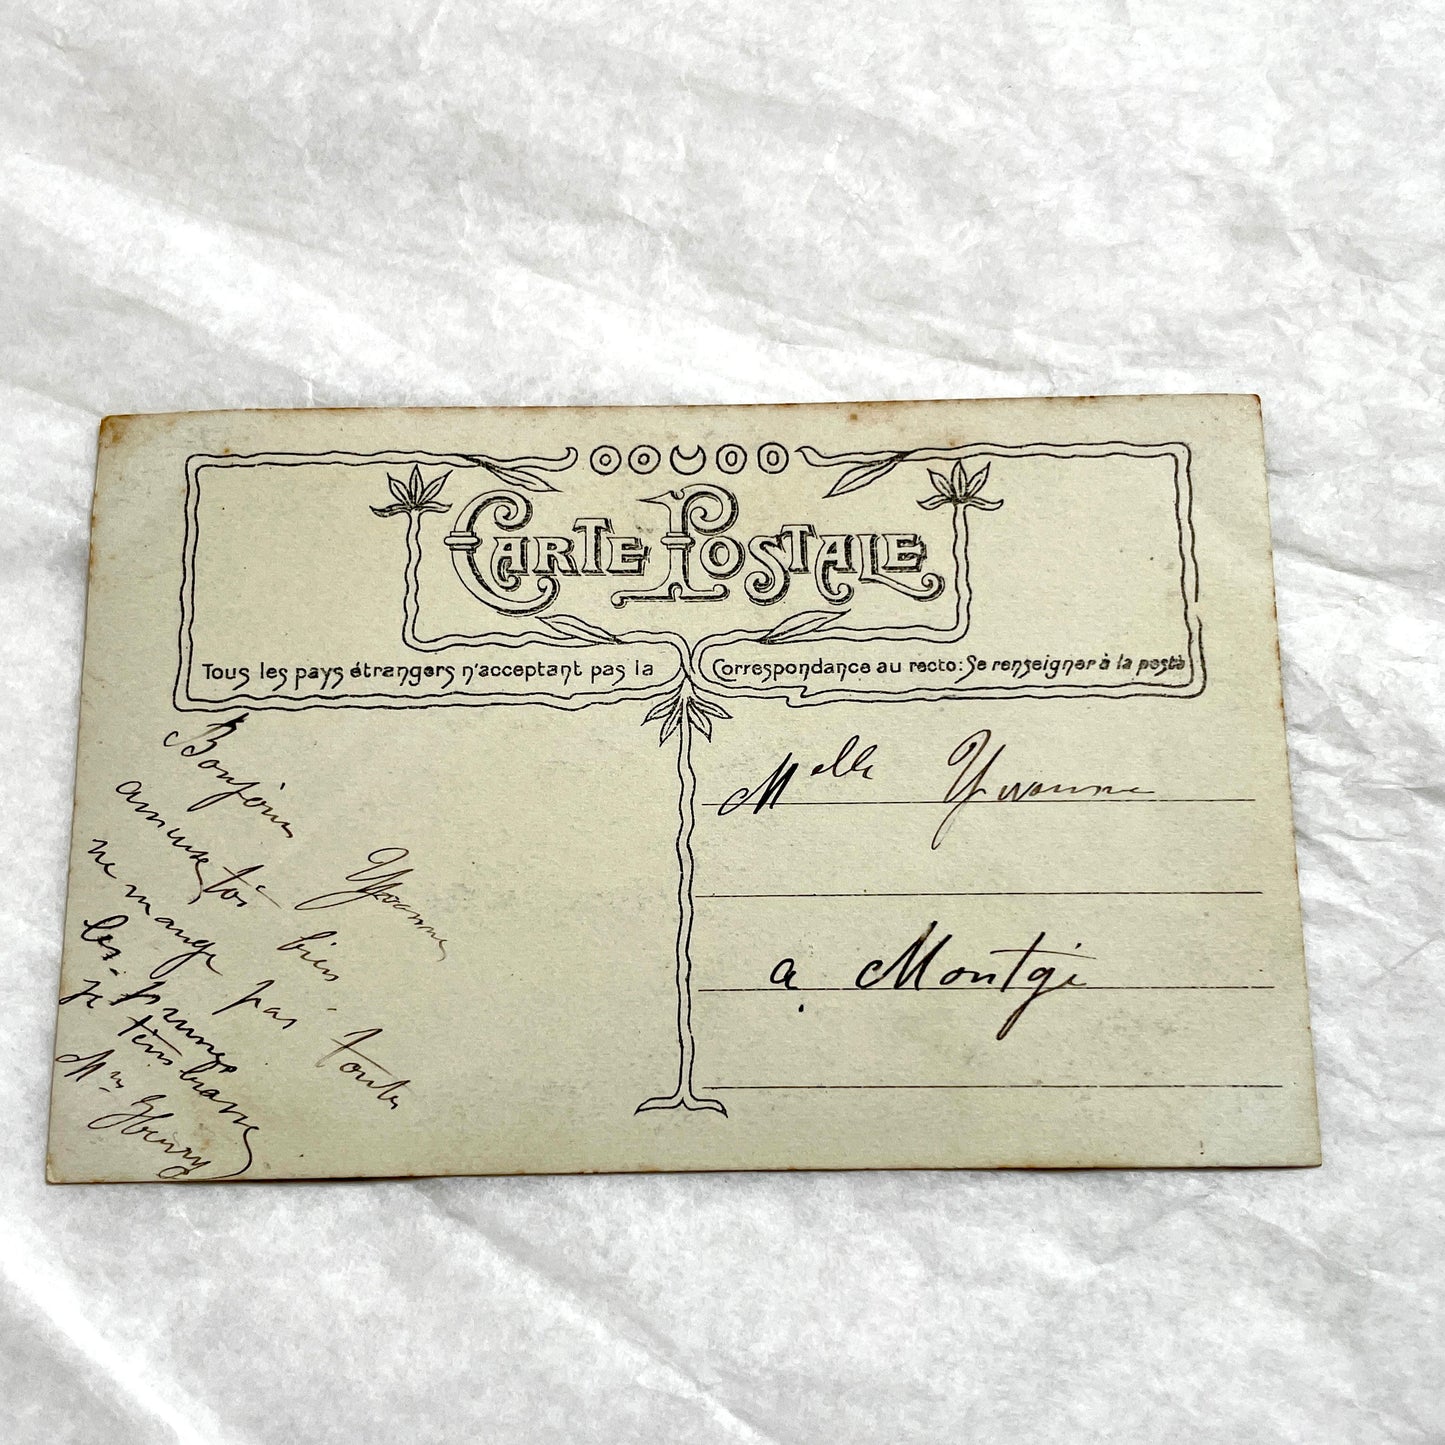 CARTE POSTALE
Tous les pays étrangers n'acceptant pas la Correspondance au recto: Se renseigner à la poste
Bonjour Yvonne
amuse toi bien
ne mange pas toute
les prunes
je t'embrasse
Mme Henry
Melle Yvonne
a Montgé